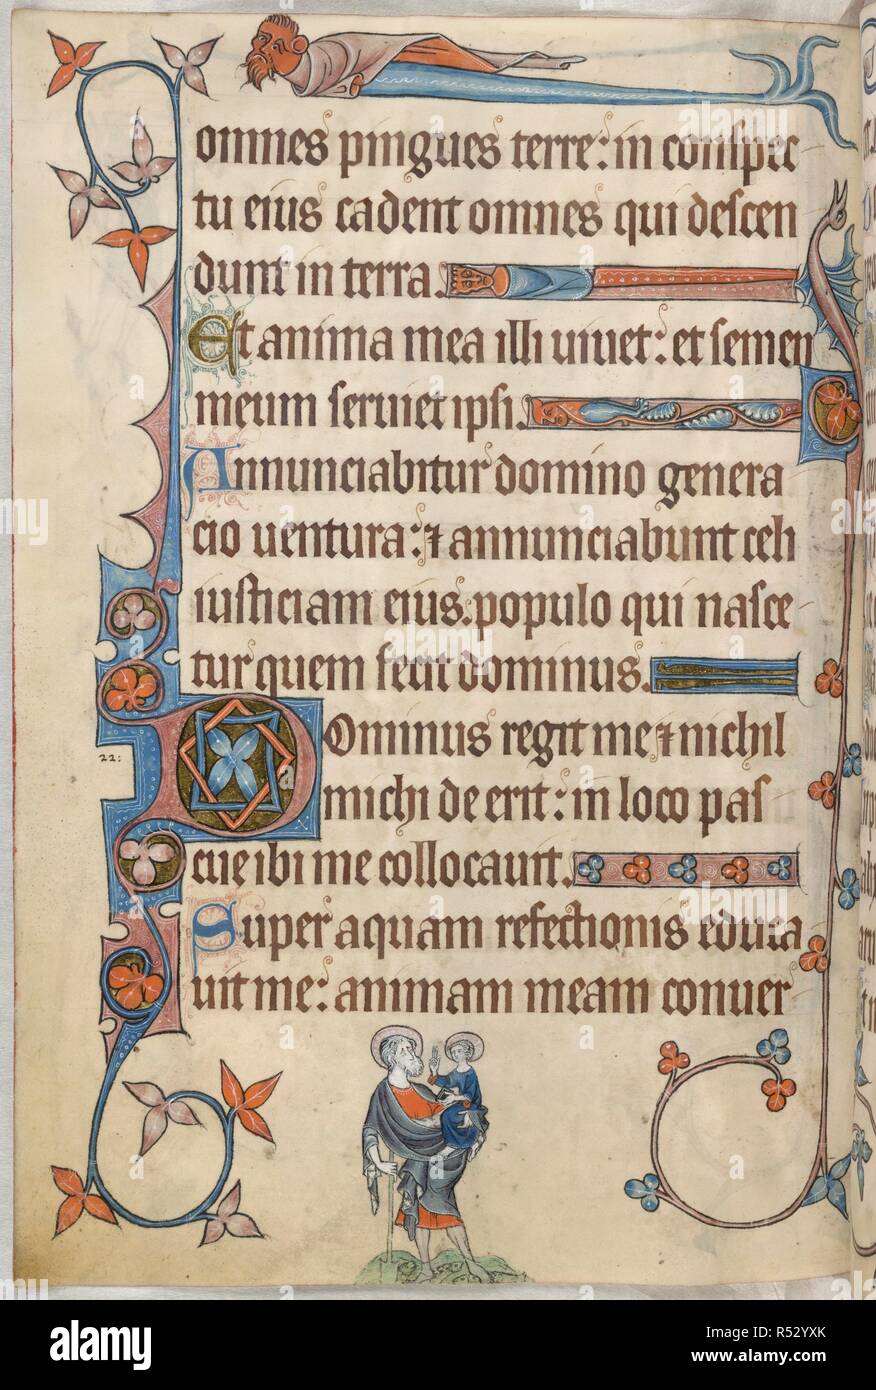 omnes pingues terre: in conspec
tu eius cadent omnes qui descen
dunt in terra.
Et anima mea illi uiuet: et semen
meum seruiet ipsi.
Annunciabitur domino genera
cio uentura: ⁊ annunciabunt celi
iusticiam eius. populo qui nasce
tur quem fecit dominus.
22:
Dominus regit me ⁊ nichil
michi deerit: in loco pas
cue ibi me collocauit.
Super aquam refectionis educa
uit me: animam meam conuer
alamy
Image ID: R52YXK
www.alamy.com